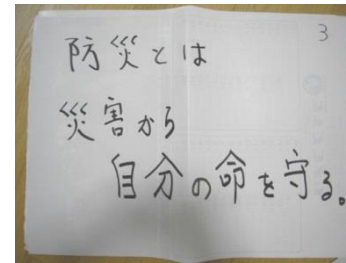 3
防災とは
災害から
自分の命を守る。